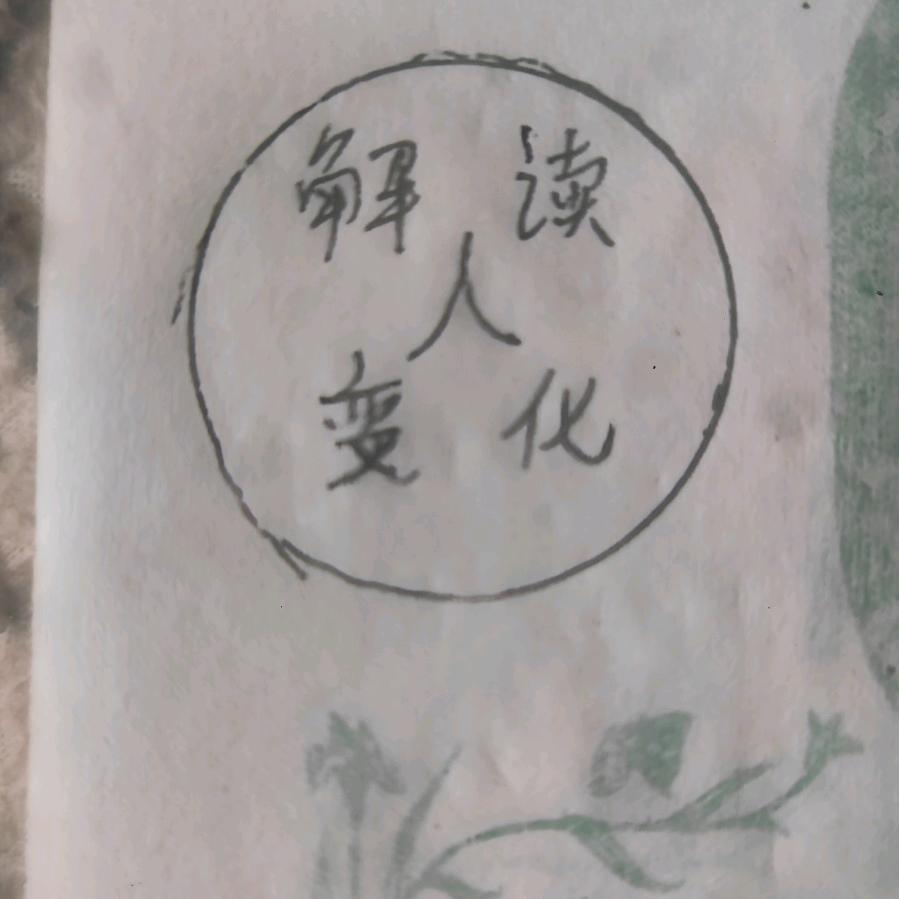 解 读
人
变 化